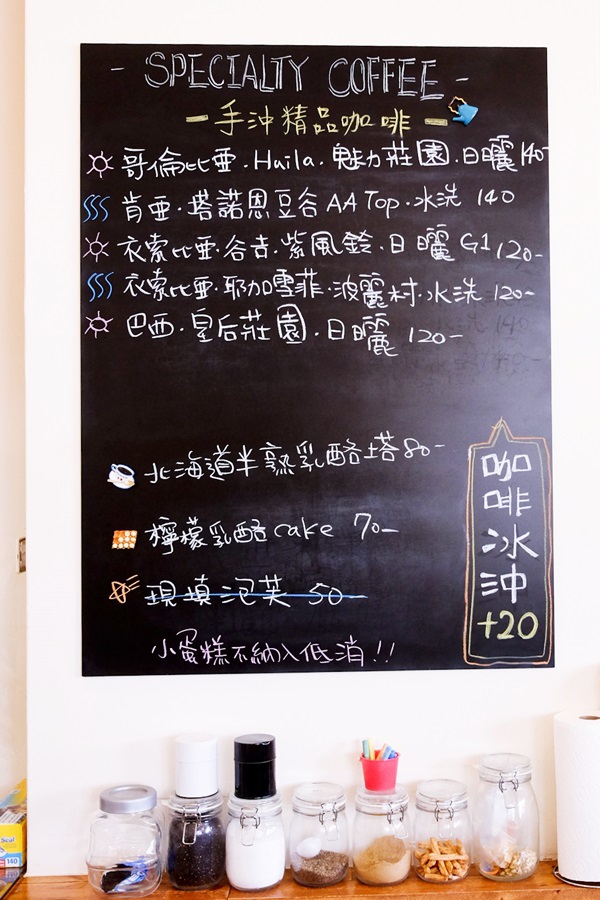 - SPECIALTY COFFEE -
- 手沖精品咖啡 -
哥倫比亞．Huila．魅力莊園．日曬 140-
肯亞．塔諾恩豆谷 AA Top．水洗 140
衣索比亞．谷吉．紫風鈴．日曬 G1 120-
衣索比亞．耶加雪菲．波麗村．水洗 120-
巴西．皇后莊園．日曬 120-
北海道半熟乳酪塔 80-
檸檬乳酪 cake 70-
現填泡芙 50-
小蛋糕不納入低消!!
咖
啡
冰
沖
+20
140